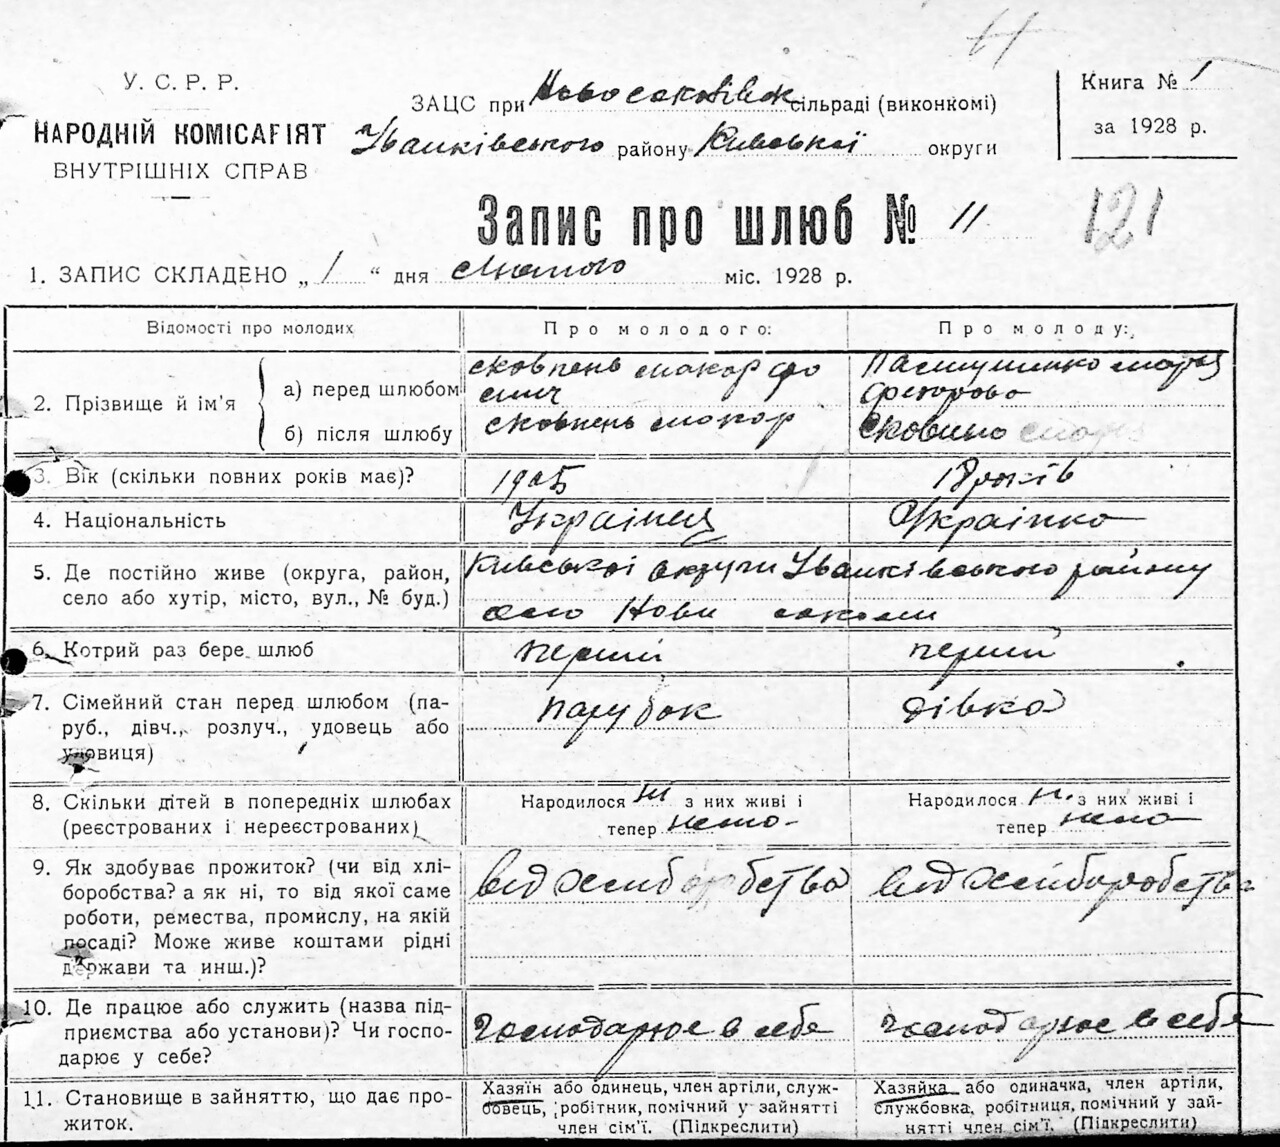 11
У. С. Р. Р.
НАРОДНІЙ КОМІСАРІЯТ
ВНУТРІШНІХ СПРАВ
ЗАЦС при Новосоколівск сільраді (виконкомі)
Іванківського району Київської округи
Книга № 1
за 1928 р.
Запис про шлюб № 11
121
1. ЗАПИС СКЛАДЕНО „1“ дня лютого міс. 1928 р.
Відомості про молодих
Про молодого:
Про молоду:
2. Прізвище й ім'я
а) перед шлюбом
б) після шлюбу
сковпень макар
сковпень макар
Пастушенко
3. Вік (скільки повних років має)?
1905
18 років
4. Національність
Українец
Українка
5. Де постійно живе (округа, район,
село або хутір, місто, вул., № буд.)
Київської округи Іванківського району
село Нови соколи
6. Котрий раз бере шлюб
перший
перший
7. Сімейний стан перед шлюбом (па-
руб., дівч., розлуч., удовець або
удовиця)
парубок
дівка
8. Скільки дітей в попередніх шлюбах
(реєстрованих і нереєстрованих)
Народилося з них живі і
тепер нема
Народилося з них живі і
тепер нема
9. Як здобуває прожиток? (чи від хлі-
боробства? а як ні, то від якої саме
роботи, ремества, промислу, на якій
посаді? Може живе коштами рідні
держави та инш.)?
вид хлиборобства
вид хлиборобства
10. Де працює або служить (назва під-
приємства або установи)? Чи госпо-
дарює у себе?
господарює в себе
господарює в себе
11. Становище в зайняттю, що дає про-
житок.
Хазяїн або одинець, член артілі, служ-
бовець, робітник, помічний у зайнятті
член сім'ї. (Підкреслити)
Хазяйка або одиначка, член артіли,
службовка, робітниця, помічний у зай-
нятті член сім'ї. (Підкреслити)